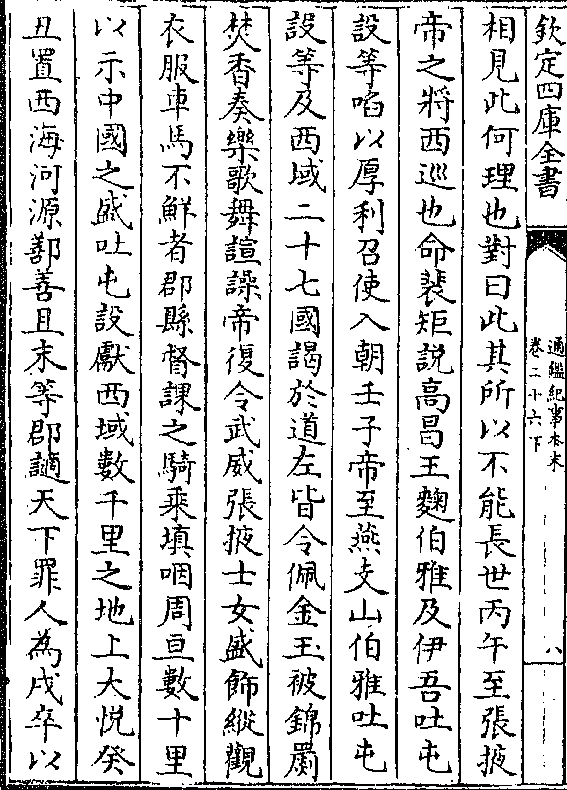 欽定四庫全書
通鑑紀事本末
卷二十六下
八
相見此何理也對曰此其所以不能長世丙午至張掖
帝之將西巡也命裴矩説高昌王麴伯雅及伊吾吐屯
設等啗以厚利召使入朝壬子帝至燕支山伯雅吐屯
設等及西域二十七國謁於道左皆令佩金玉被錦罽
焚香奏樂歌舞諠譟帝復令武威張掖士女盛飾縱觀
衣服車馬不鮮者郡縣督課之騎乘填咽周亘數十里
以示中國之盛吐屯設獻西域數千里之地上大悦癸
丑置西海河源鄯善且末等郡謫天下罪人為戍卒以